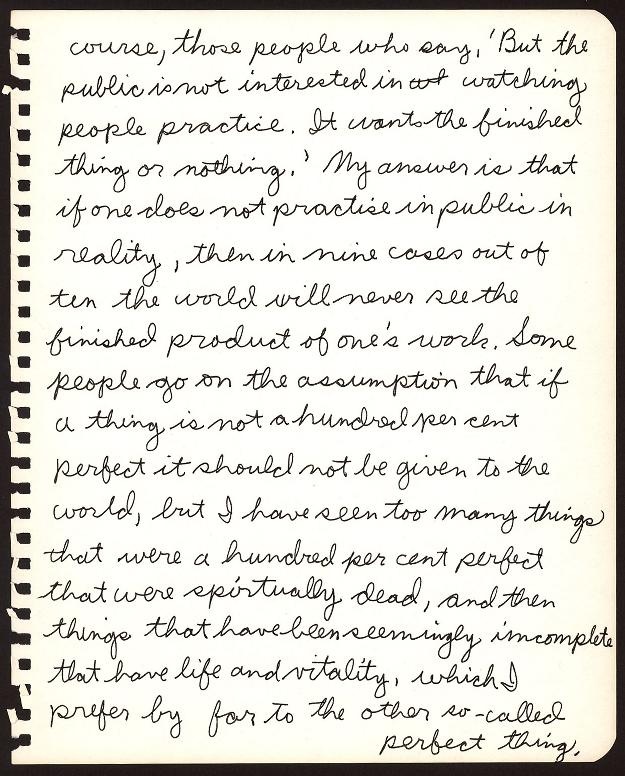 course, those people who say, 'But the
public is not interested in wat watching
people practice. It wants the finished
thing or nothing.' My answer is that
if one does not practise in public in
reality, then in nine cases out of
ten the world will never see the
finished product of one's work. Some
people go on the assumption that if
a thing is not a hundred per cent
perfect it should not be given to the
world, but I have seen too many things
that were a hundred per cent perfect
that were spirtually dead, and then
things that have been seemingly imcomplete
that have life and vitality, which I
prefer by far to the other so-called
perfect thing.